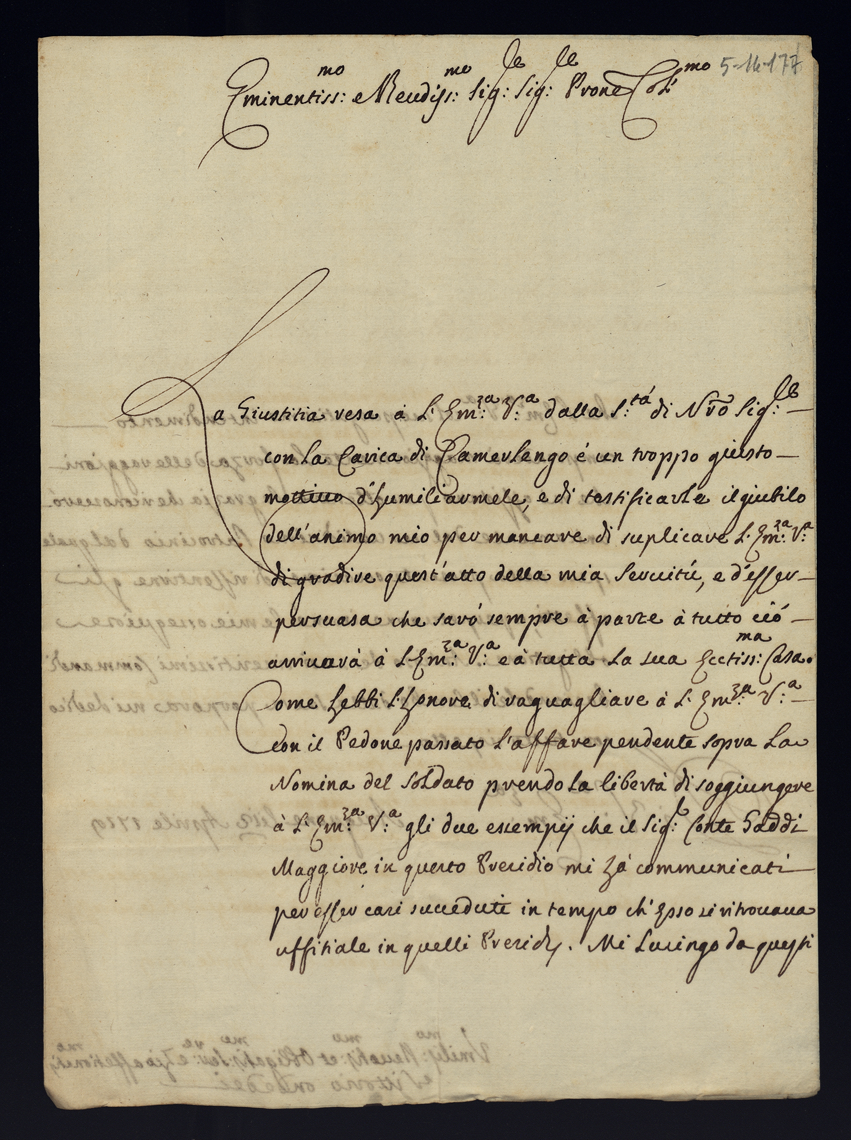 5-14-177
Eminentiss:mo e Reudiss:mo Sig:re Sig:re Prone Col:mo
La Giustitia resa à L'Em:za V:a dalla S:tà di Nro Sig:re
con la Carica di Camerlengo é un troppo giusto
mottivo d'humiliarmele, e di testificarle il giubilo
dell'animo mio per mancare di suplicare L'Em:za V:a
di gradire quest'atto della mia Servitú, e d'esser
persuasa che saró sempre à parte à tutto ció
arriverà à L'Em:za V:a e à tutta la sua Ecctiss:ma Casa.
Come hebbi l'honore di raguagliare à L'Em:za V:a
con il Pedone passato l'affare pendente sopra la
Nomina del soldato prendo la libertà di soggiungere
à L'Em:za V:a gli due essempij che il Sig:r Conte Gaddi
Maggiore in questo Presidio mi hà communicati
per esser casi succeduti in tempo ch'Esso si ritrovava
uffitiale in quelli Presidij. Mi Lusingo da questi